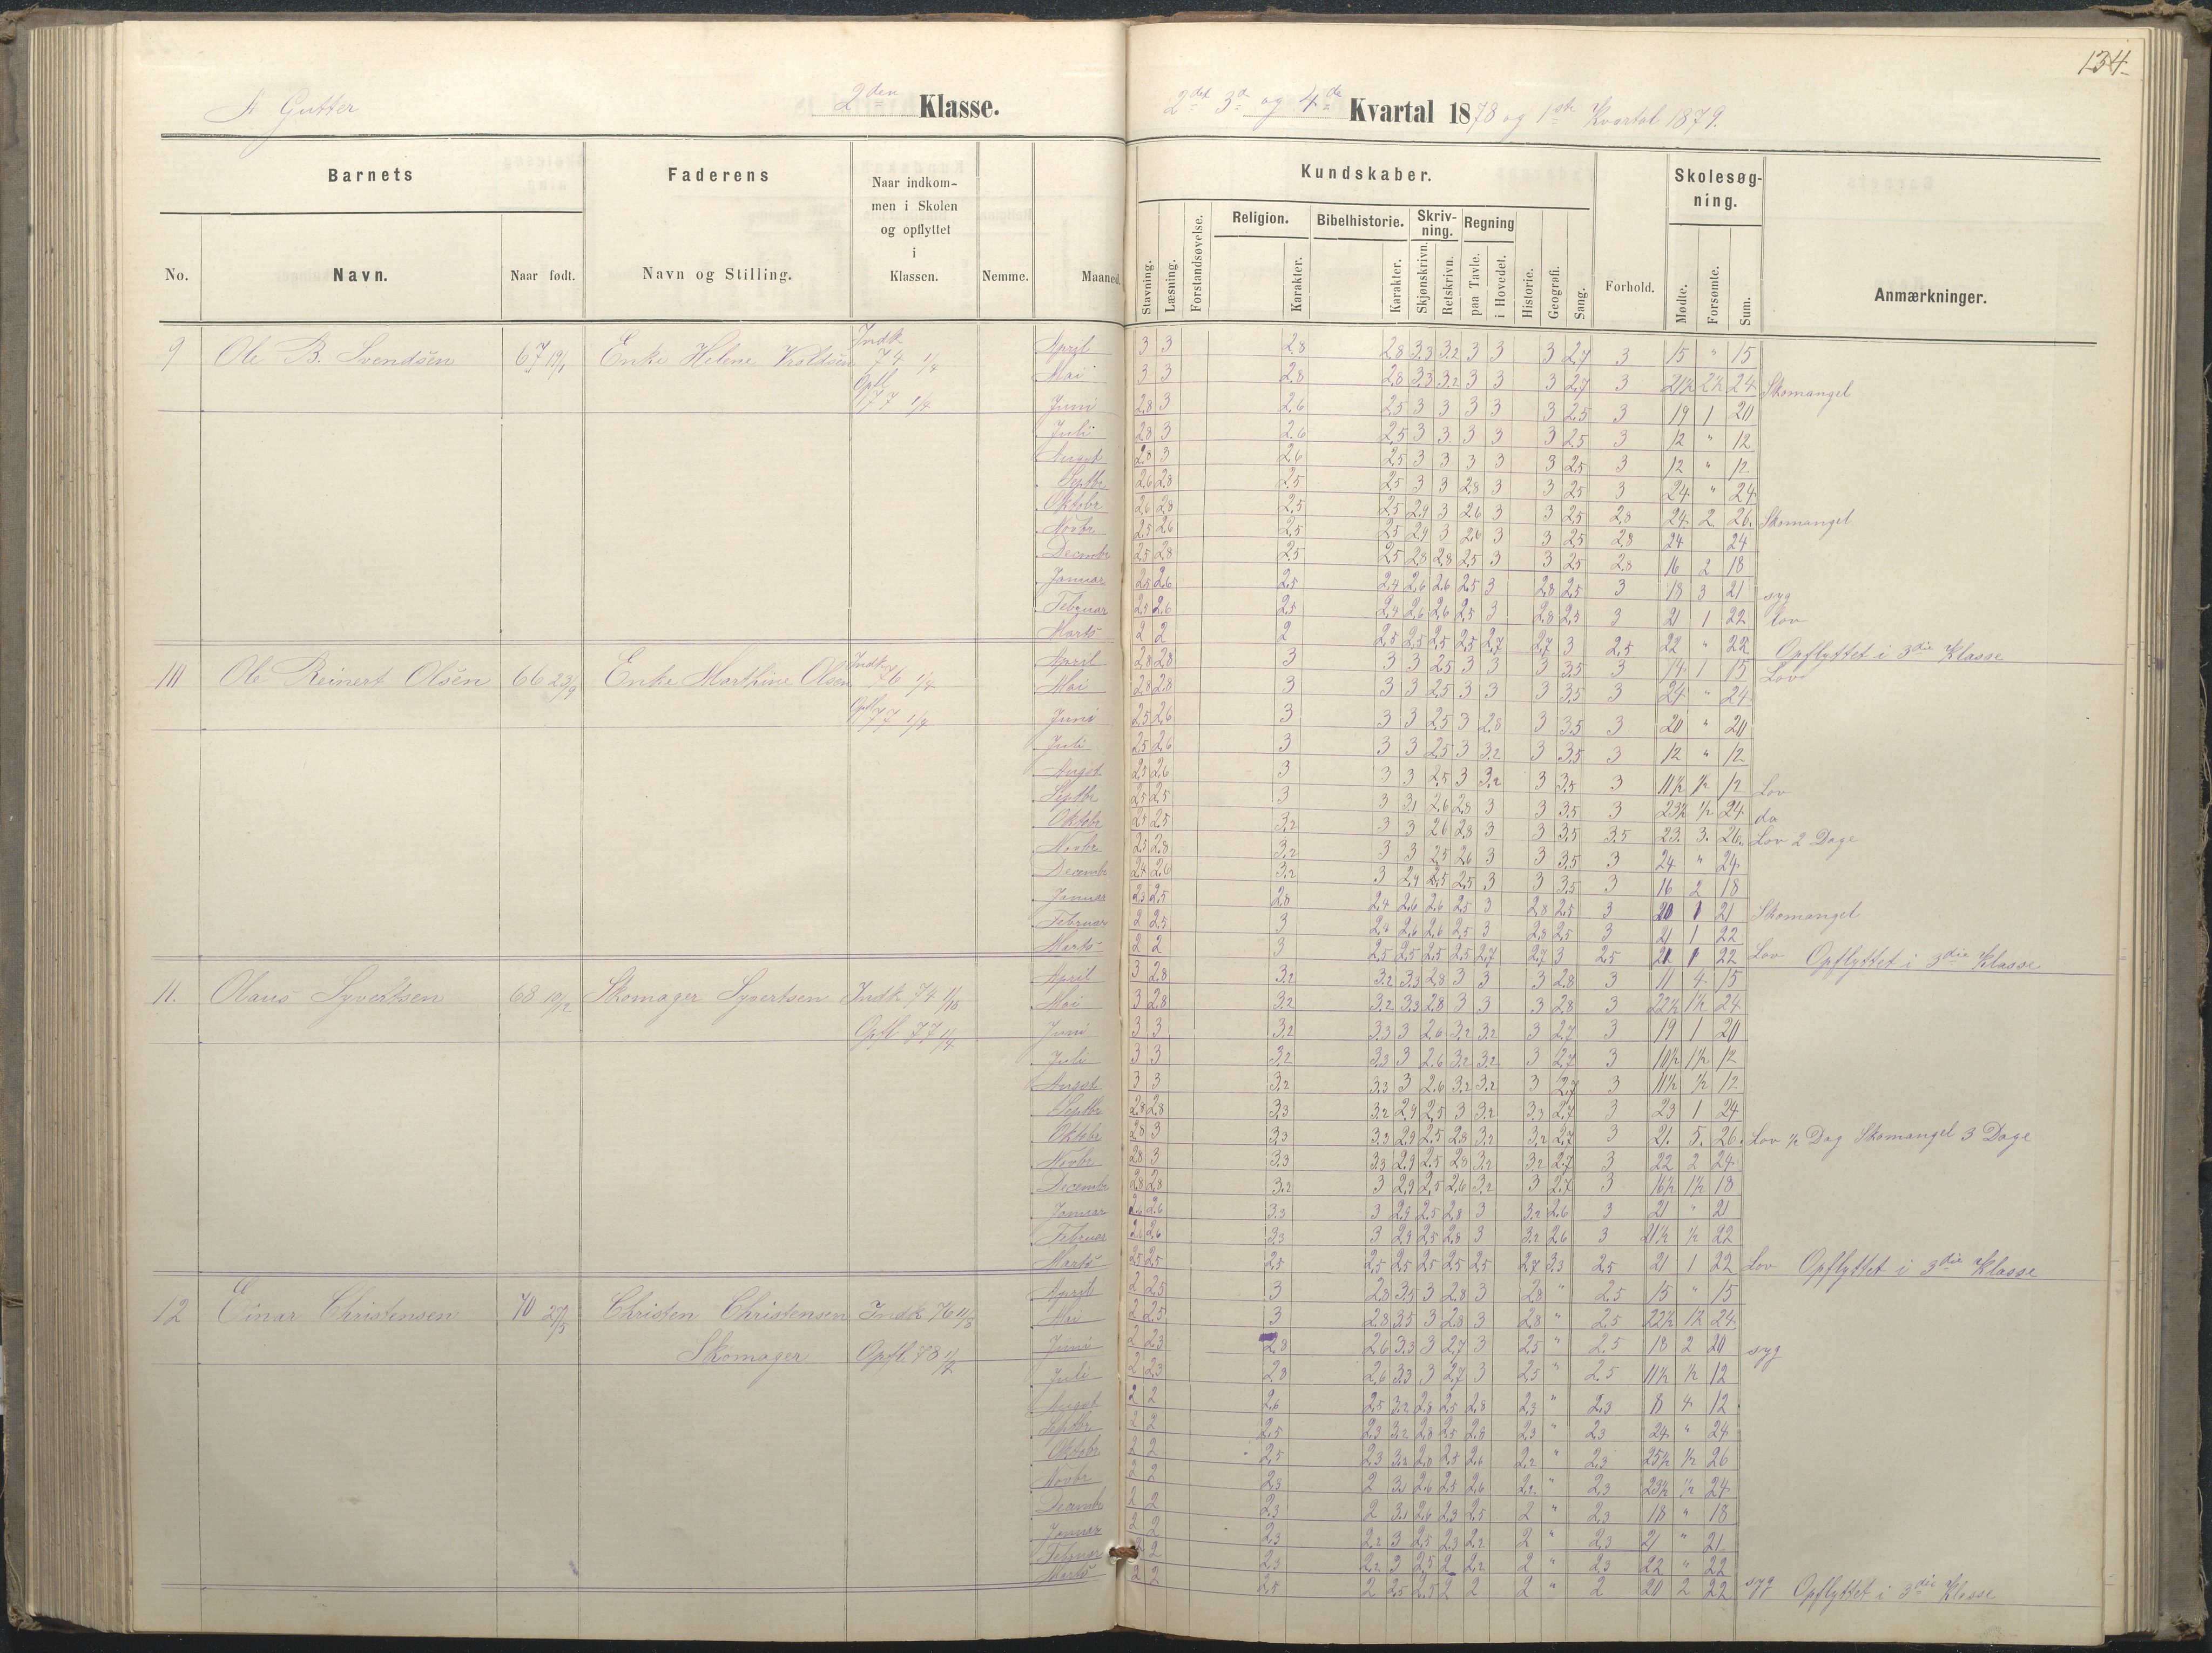 134.
A Gutter
2den Klasse.
2det 3de og 4de Kvartal 1878 og 1ste Kvartal 1879.
Barnets
Faderens
Naar indkom-
men i Skolen
og opflyttet
i
Klassen.
Kundskaber.
Skolesøg-
ning.
Religion. Bibelhistorie. Skriv-
ning. Regning
No. Navn. Naar født. Navn og Stilling. Nemme. Maaned.
Stavning. Læsning. Forstandsøvelse. Karakter. Karakter. Skjønskrivn. Retskrivn. paa Tavle. i Hovedet. Historie. Geografi. Sang. Forhold. Mødte. Forsømte. Sum. Anmærkninger.
9 Ole B. Svendsen 67 19/1 Enke Helene Indk 74
Opfl 77 1/4
April 3 3 2,8 2,8 3,3 3,2 3 3 3 2,7 3 15 " 15
Mai 3 3 2,8 2,8 3,3 3,2 3 3 3 2,7 3 21½ 2½ 24 Skomangel
Juni 2,8 3 2,6 2,5 3 3 3 3 3 2,5 3 19 1 20
Juli 2,8 3 2,6 2,5 3 3 3 3 3 2,5 3 12 " 12
August 2,8 3 2,6 2,5 3 3 3 3 3 2,5 3 12 " 12
Septbr 2,6 2,8 2,5 2,5 3 3 2,8 3 3 2,5 3 24 " 24
Oktobr 2,6 2,8 2,5 2,5 2,9 3 2,6 3 3 2,5 2,8 24 2 26. Skomangel
Novbr 2,5 2,6 2,5 2,5 2,9 3 2,6 3 3 2,5 2,8 24 24
Decembr 2,5 2,8 2,5 2,5 2,8 2,8 2,5 3 3 2,5 2,8 16 2 18
Januar 2,5 2,6 2,5 2,4 2,6 2,6 2,5 3 2,8 2,5 3 18 3 21 syg
Februar 2,5 2,6 2,5 2,4 2,6 2,6 2,5 3 2,8 2,5 3 21 1 22 Lov
Marts 2 2 2 2,5 2,5 2,5 2,5 2,7 2,7 3 2,5 22 " 22 Opflyttet i 3die Klasse
10 Ole Reinert Olsen 66 23/9 Enke Marthine Olsen Indk 76 1/4
Opfl 77 1/4
April 2,8 2,8 3 3 3 2,5 3 3 3 3,5 3 14 1 15 Lov
Mai 2,8 2,8 3 3 3 2,5 3 3 3 3,5 3 24 " 24
Juni 2,5 2,6 3 3 3 2,5 3 2,8 3 3,5 3 20 " 20
Juli 2,5 2,6 3 3 3 2,5 3 3,2 3 3,5 3 12 " 12
Augst 2,5 2,6 3 3 3 2,5 3 3,2 3 3,5 3 11½ ½ 12 Lov
Septbr 2,5 2,5 3 3 3,1 2,6 2,8 3 3 3,5 3 23½ ½ 24 do
Oktobr 2,5 2,5 3,2 3 3 2,6 2,8 3 3 3,5 3,5 23. 3. 26. Lov 2 Dage
Novbr 2,5 2,8 3,2 3 3 2,5 2,6 3 3 3,5 3 24 " 24
Decembr 2,4 2,6 3,2 3 2,9 2,5 2,5 3 3 3,5 3 16 2 18
Januar 2,3 2,5 2,8 2,4 2,6 2,6 2,5 3 2,8 2,5 3 20 1 21 Skomangel
Februar 2 2,5 3 2,4 2,6 2,6 2,5 3 2,8 2,5 3 21 1 22
Marts 2 2 3 2,5 2,5 2,5 2,5 2,7 2,7 3 2,5 21 1 22 Lov Opflyttet i 3die Klasse
11. Olaus Syvertsen 68 10/12 Skomager Syvertsen Indk 74 1/10
Opfl 77 1/4
April 3 2,8 3,2 3,2 3,3 2,8 3 3 3 2,8 3 11 4 15
Mai 3 2,8 3,2 3,2 3,3 2,8 3 3 3 2,8 3 22½ 1½ 24
Juni 3 3 3,2 3,3 3 2,6 3,2 3,2 3 2,7 3 19 1 20
Juli 3 3 3,2 3,3 3 2,6 3,2 3,2 3 2,7 3 10½ 1½ 12
August 3 3 3,2 3,3 3 2,6 3,2 3,2 3 2,7 3 11½ ½ 12
Septbr 2,8 2,8 3,3 3,2 2,9 2,5 3 3,2 3,3 2,7 3 23 1 24
Oktobr 2,8 3 3,3 3,3 2,9 2,5 2,8 3,2 3,2 2,7 3 21. 5. 26. Lov ½ Dag Skomangel 3 Dage
Novbr 2,8 3 3,3 3,3 2,9 2,5 2,8 3,2 3,2 2,7 3 22 2 24
Decembr 2,8 2,8 3,2 3 2,9 2,5 2,6 3,2 3 2,7 3 16½ 1½ 18
Januar 2,6 2,6 3,3 3 2,9 2,5 2,8 3 3,2 2,6 3 21 " 21
Februar 2,6 2,6 3,3 3 2,9 2,5 2,8 3 3,2 2,6 3 21½ ½ 22
Marts 2,5 2,5 2,5 2,5 2,5 2,5 2,5 2,5 2,7 3,3 2,5 21 1 22 Lov Opflyttet i 3die Klasse
12 Einar Christensen 70 27/5 Christen Christensen Indk 76
Skomager Opfl. 78 1/2
April 2 2,5 3 2,8 3,5 3 2,8 3 2,8 " 2,5 15 " 15
Mai 2 2,5 3 2,8 3,5 3 2,8 3 2,8 " 2,5 22½ 1½ 24
Juni 2 2,3 2,8 2,6 3,3 3 2,7 3 2,5 " 2,5 18 2 20 syg
Juli 2 2,3 2,8 2,6 3,3 3 2,7 3 2,5 " 2,5 11½ ½ 12
August 2 2 2,6 2,5 3,2 2,8 2,5 2,8 2,3 " 2,3 8 4 12
Septbr 2 2 2,5 2,3 3,2 2,8 2,5 2,8 2,3 " 2,3 24 " 24
Oktobr 2 2 2,5 2,3 3,2 2,8 2,5 2,6 2,2 " 2,3 25½ ½ 26
Novbr 2 2 2,3 2 3,1 2,6 2,5 2,6 2,2 " 2,3 23½ ½ 24
Decembr 2 2 2,3 2 3,1 2,6 2,3 2,5 2 " 2,3 18 " 18
Januar 2 2 2,3 2,2 3 2,5 2,3 2,2 2 " 2,3 21 " 21
Februar 2 2 2,3 2,2 3 2,5 2 2,2 2 " 2,3 22 " 22
Marts 2 2 2,5 2 2,5 2,5 2 2 2 " 2 20 2 22 syg Opflyttet i 3die Klasse